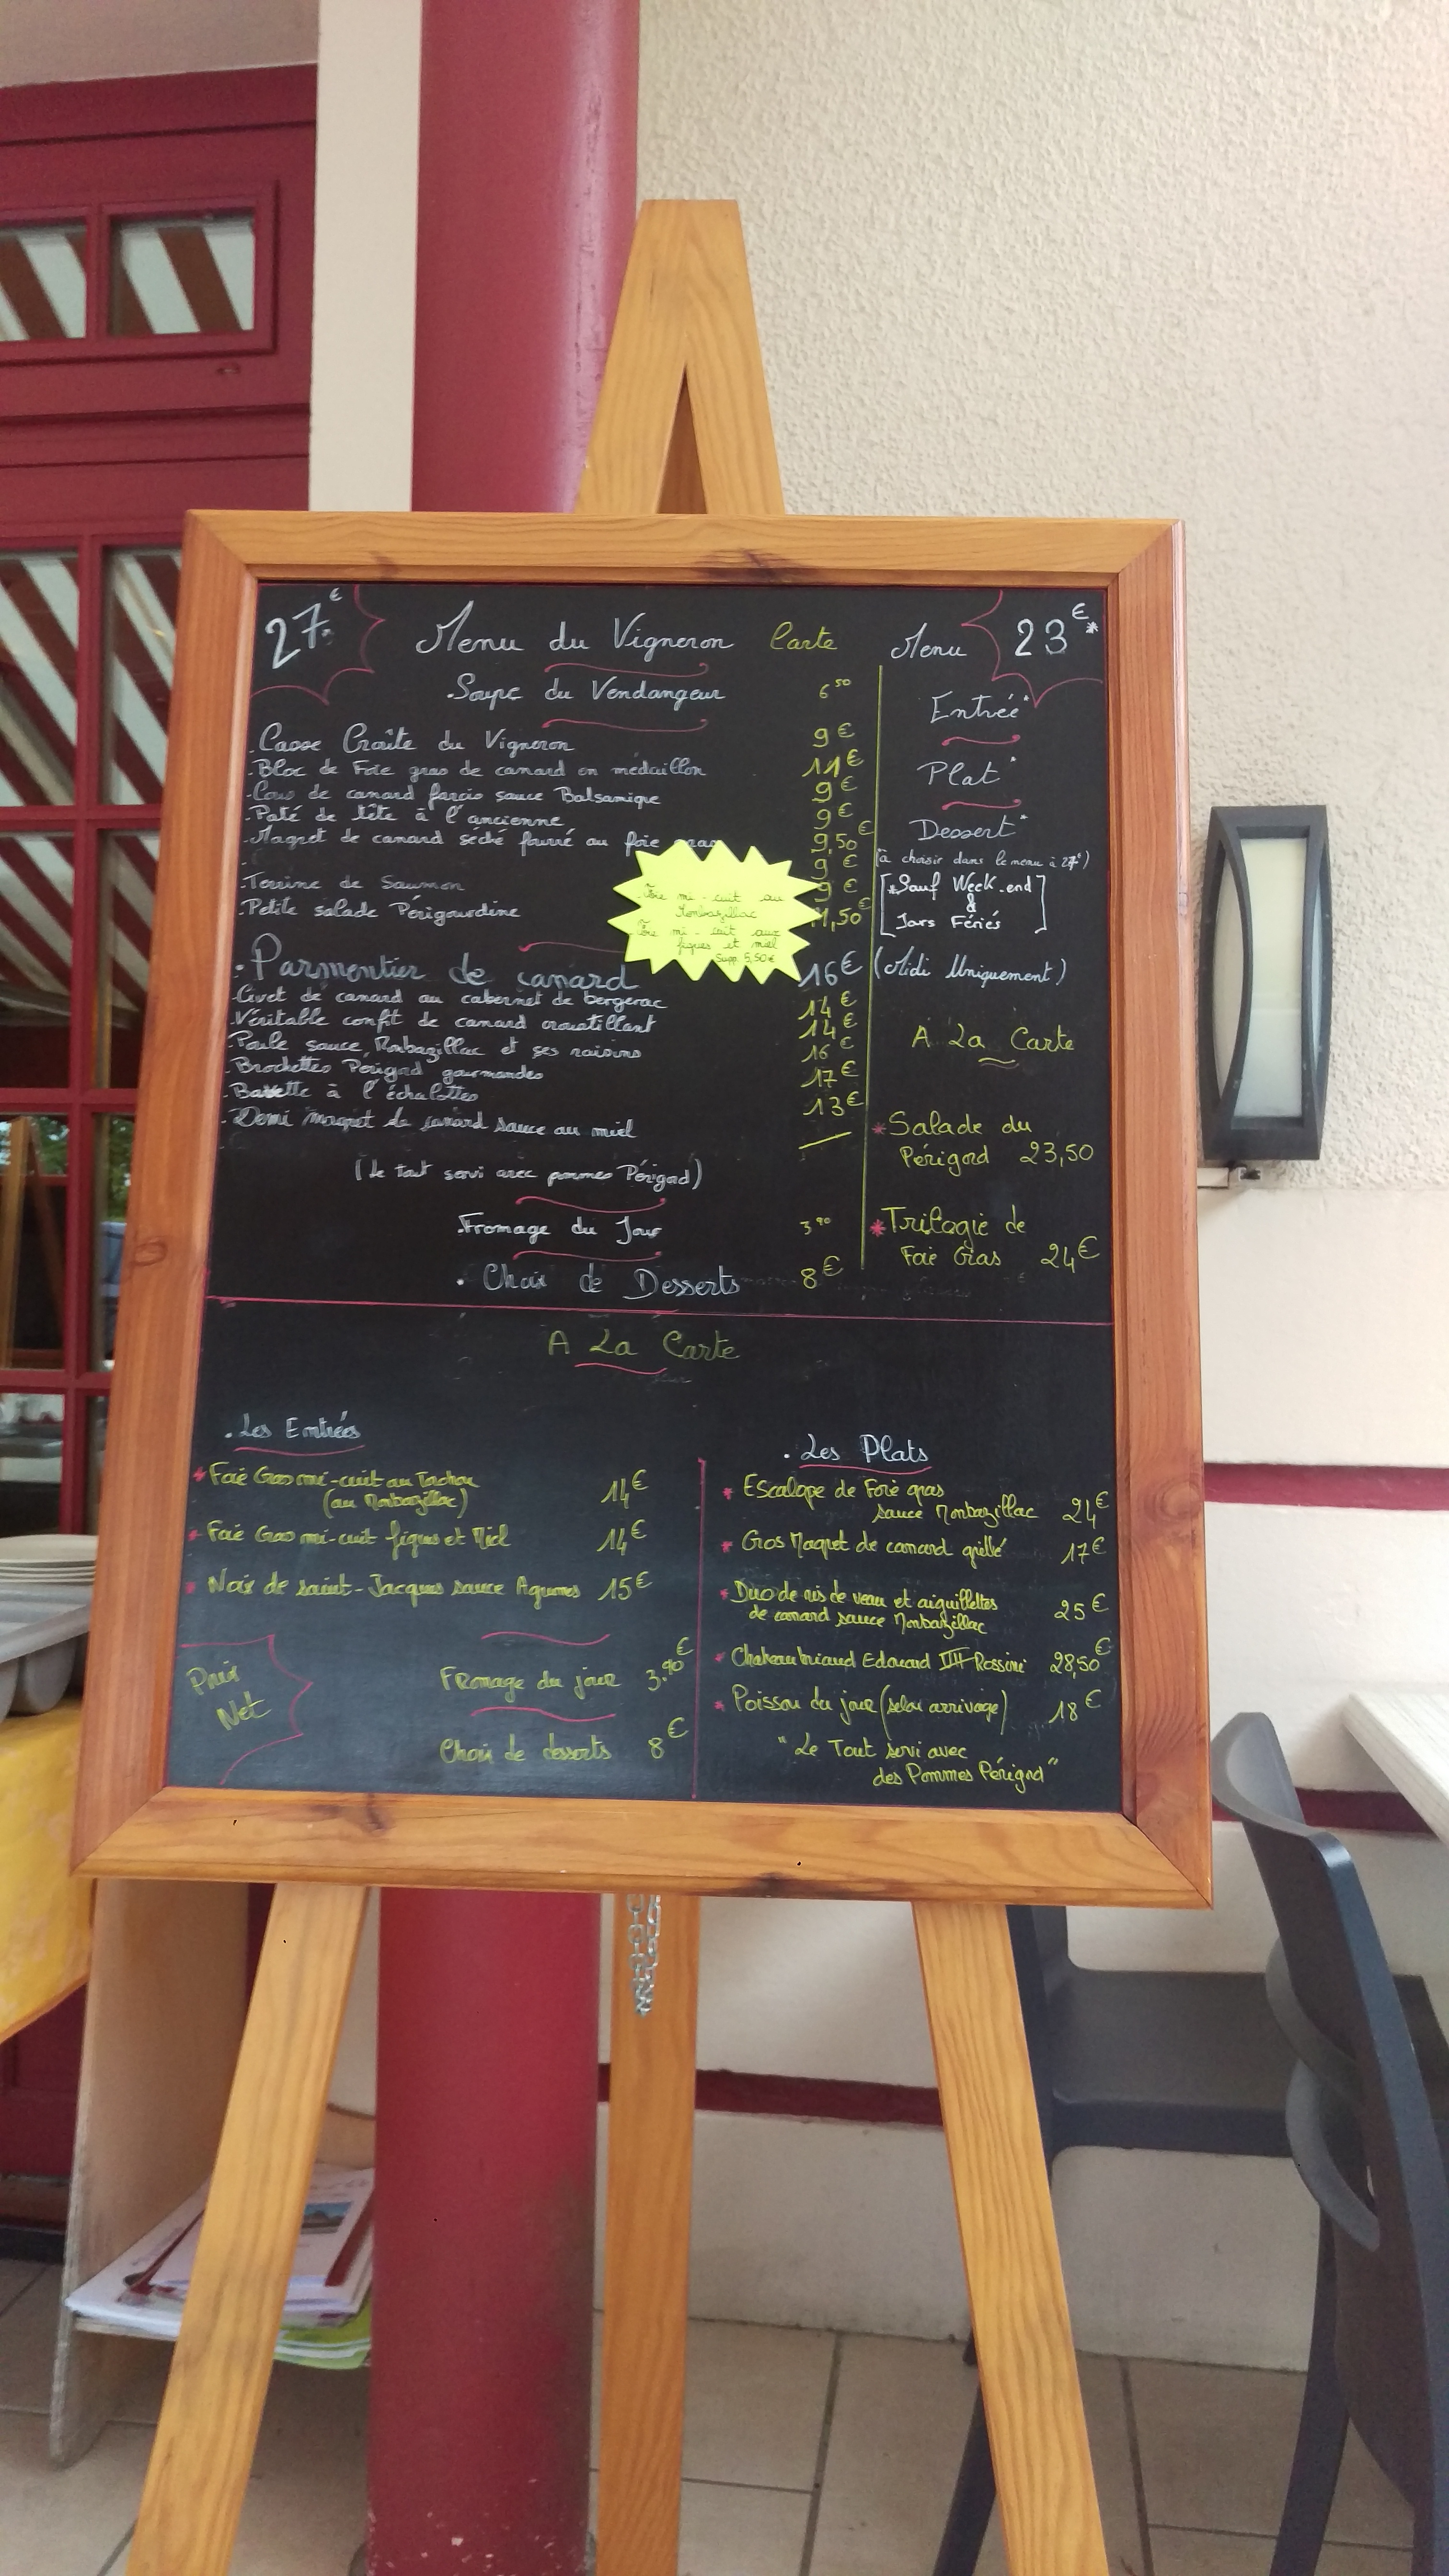 27€
Menu du Vigneron
Carte
Menu 23€*
.Soupe du Vendangeur 6 50
.Casse Croûte du Vigneron 9€
.Bloc de Foie gras de canard en médaillon 11€
.Cous de canard farcis sauce Balsamique 9€
.Paté de tête à l'ancienne 9€
.Magret de canard séché fourré au foie gras 9,50€
9€
.Terrine de Saumon 9€
.Petite salade Périgourdine 11,50€
Foie mi-cuit au
Monbazillac
Foie mi-cuit aux
figues et miel
Supp. 5,50€
.Parmentier de canard 16€
.Civet de canard au cabernet de bergerac 14€
.Véritable confit de canard croustillant 14€
.Poule sauce Monbazillac et ses raisins 16€
.Brochettes Périgord gourmandes 17€
.Bavette à l'échalottes 13€
.Demi magret de canard sauce au miel
(Le tout servi avec pommes Périgord)
.Fromage du Jour 3,90
.Choix de Desserts 8€
Entrée*
Plat*
Dessert*
(à choisir dans le menu à 27€)
*Sauf Week-end
&
Jours Fériés
(Midi Uniquement)
A La Carte
*Salade du
Périgord 23,50
*Trilogie de
Foie Gras 24€
A La Carte
.Les Entrées
*Foie Gras mi-cuit au Torchon
(au Monbazillac) 14€
*Foie Gras mi-cuit figues et Miel 14€
*Noix de saint-Jacques sauce Agrumes 15€
Prix
Net
Fromage du jour 3.90€
Choix de desserts 8€
.Les Plats
*Escalope de Foie gras
sauce Monbazillac 24€
*Gros Magret de canard grillé 17€
*Duo de ris de veau et aiguillettes
de canard sauce Monbazillac 25€
*Chateaubriand Edouard VII Rossini 28,50€
*Poisson du jour (selon arrivage) 18€
"Le Tout servi avec
des Pommes Périgord"